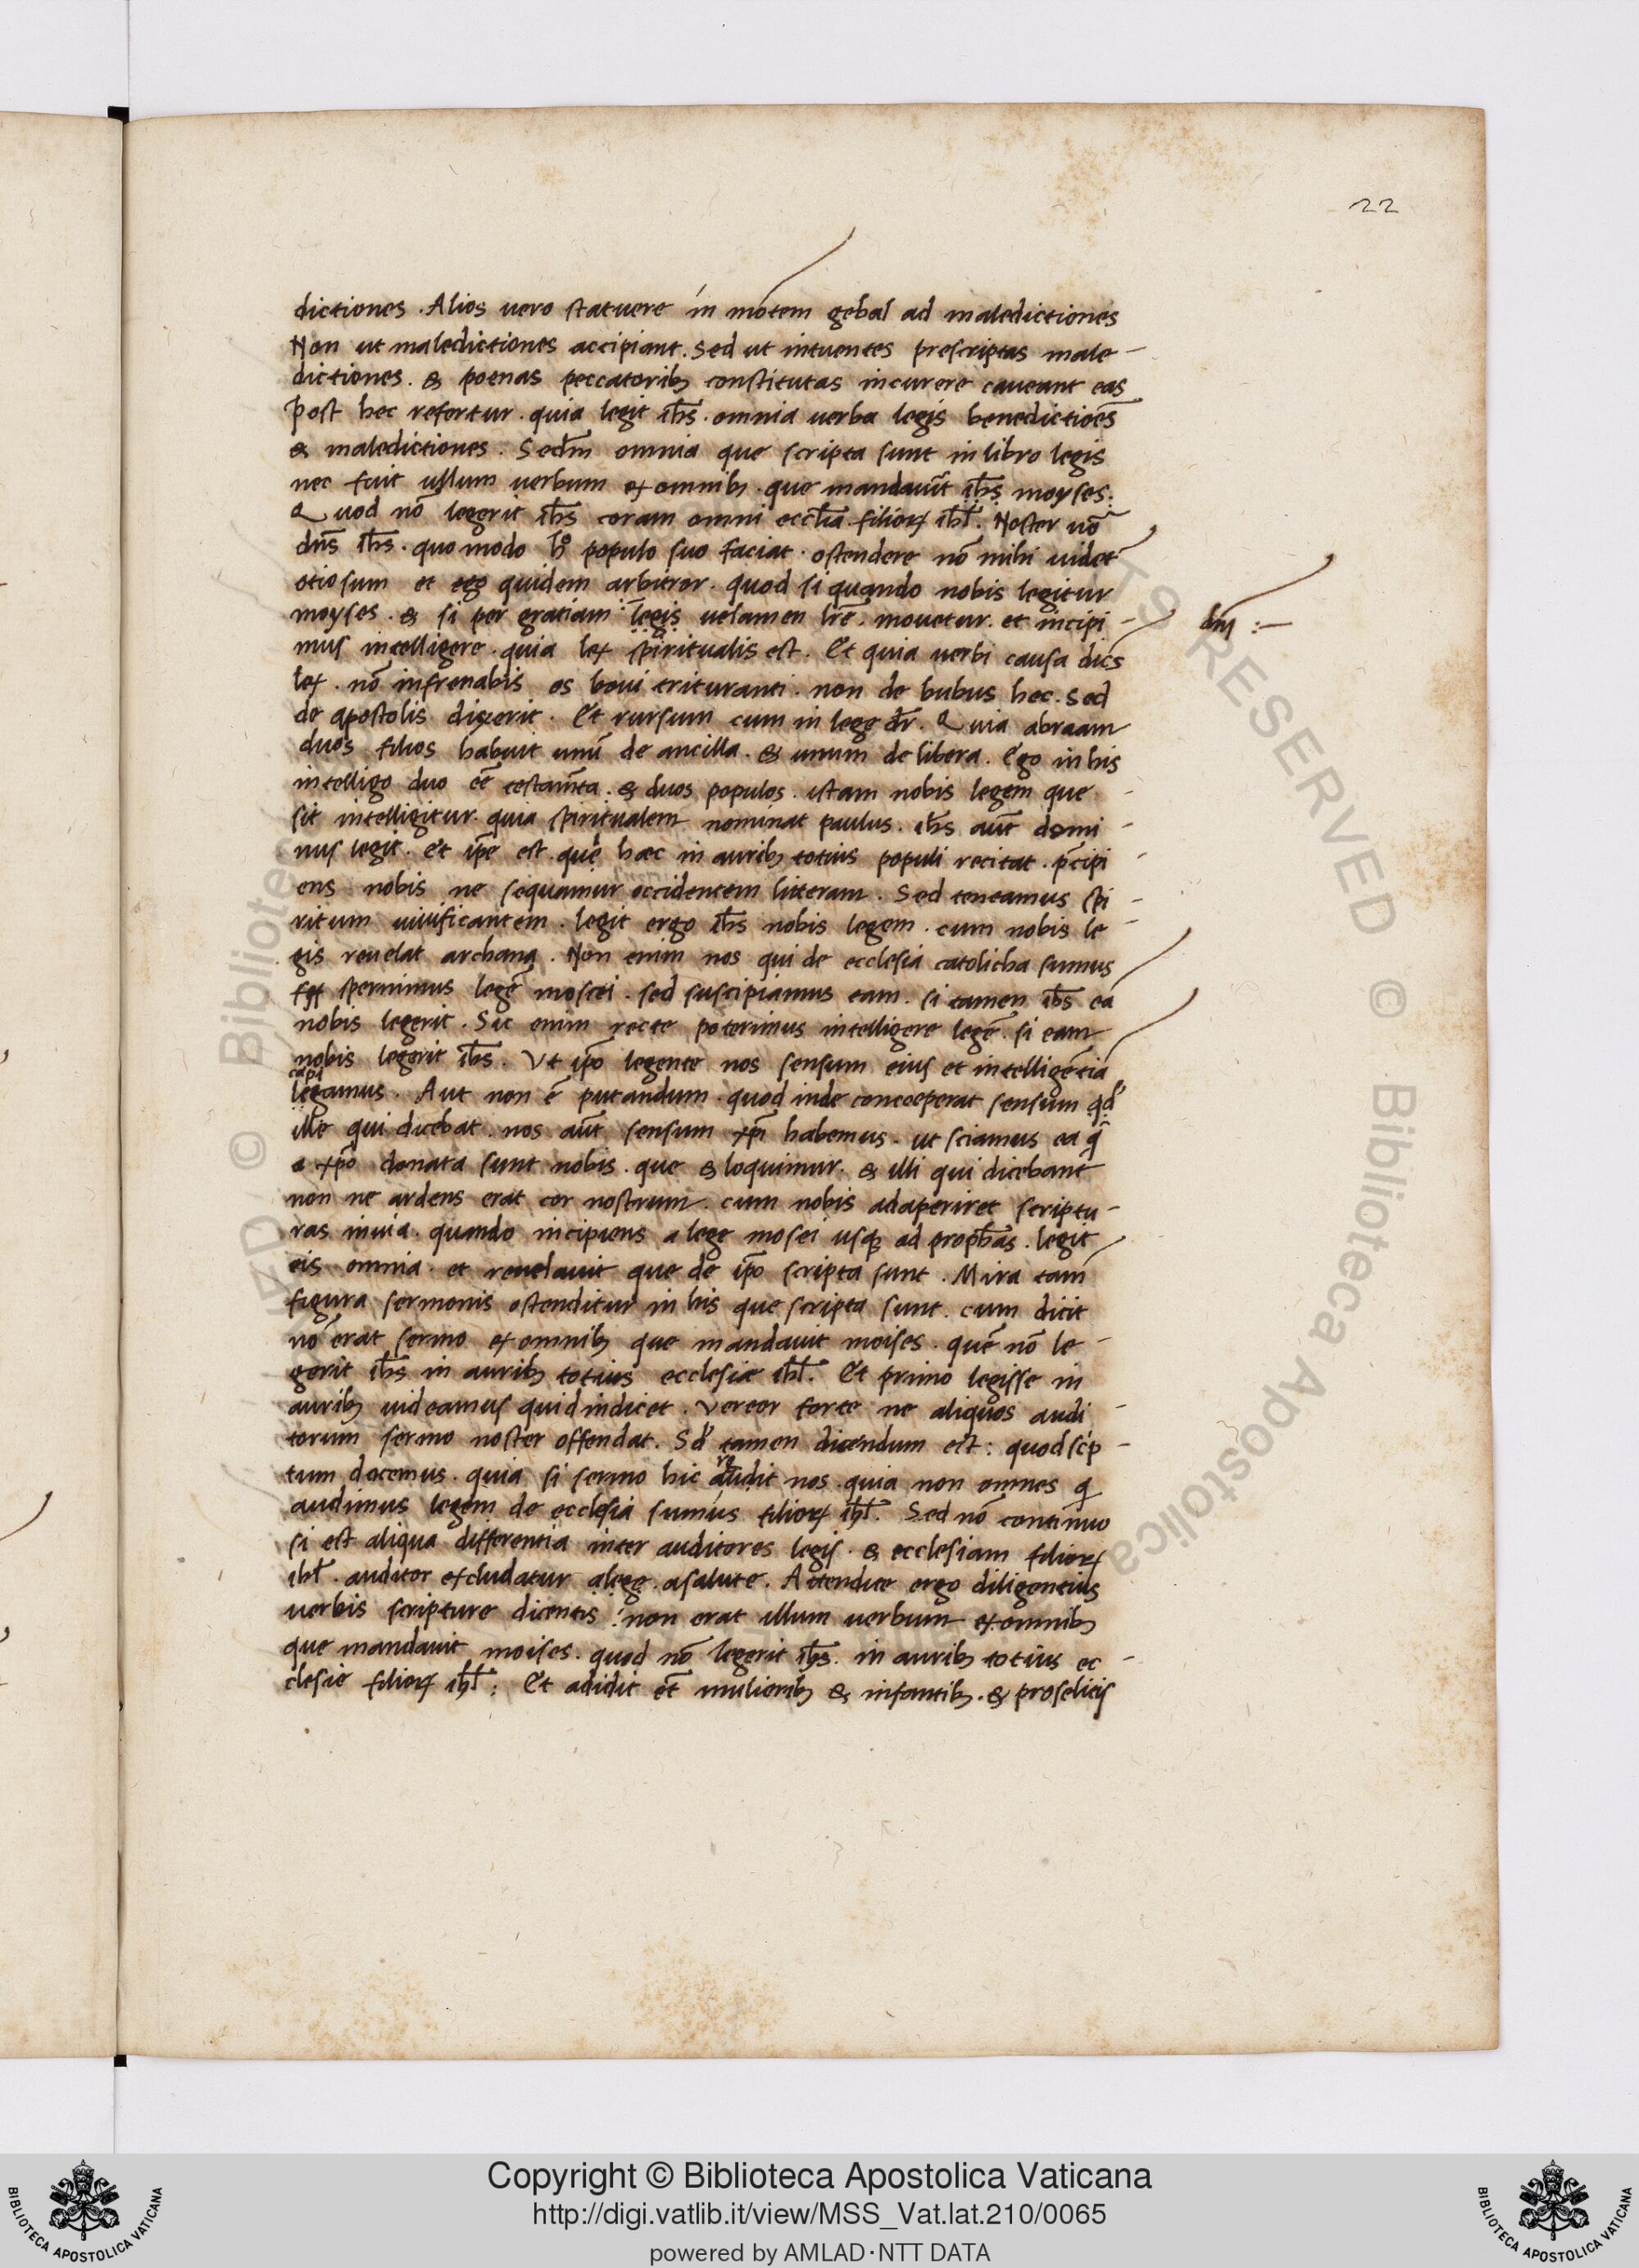 22
dictiones . Alios uero statuere in mōtem gebal ad maledictiones
Non ut maledictiones accipiant . sed ut intuentes prescriptas male-
dictiones . & poenas peccatorib; constitutas incurere caueant eas
Post hec refertur . quia legit ih̄s . omnia uerba legis benedictiōes
& maledictiones . Sedm̄ omnia que scripta sunt in libro legis
nec fuit ullum uerbum ex omnib; . que mandauit̄ ih̄s moyses .
Quod nō legerit ih̄s coram omni eccl̄ia filioꝝ ih̄l . Noster uō
dn̄s ih̄s . quomodo h° populo suo faciat . ostendere nō mihi uidet̄
otiosum et ego quidem arbitror . quod si quando nobis legitur
moyses . & si per gratiam legis uelamen lr̄e . mouetur . et incipi- dn̄i :-
mus intelligere . quia lex spiritualis est . Et quia uerbi causa dic̄s
lex . nō infrenabis os boui trituranti . non de bubus hec . sed
de apostolis dixerit . Et rursum cum in lege dr̄ . Quia abraam
duos filios habuit unū de ancilla . & unum de libera . Ego in his
intelligo duo eē testam̄ta . & duos populos . istam nobis legem que -
sit intelligitur . quia spiritualem nominat paulus . ih̄s aūt domi -
nus legit . Et ip̄e est que hæc in aurib; totius populi recitat . p̄cipi -
ens nobis ne sequamur occidentem litteram . Sed teneamus spi -
ritum uiuificantem . legit ergo ih̄s nobis legem . cum nobis le -
gis reuelat archana . Non enim nos qui de ecclesia catolicha sumus
spernimus legē moscei . sed suscipiamus eam . si tamen ih̄s eā
nobis legerit . Sic enim recte poterimus intelligere legē . si eam
nobis legerit ih̄s . Vt ip̄o legente nos sensum eius et intelligētiā
capi
legamus . Aut non ē putandum . quod inde concoeperat sensum qd̄
ille qui dicebat . nos aūt sensum xp̄i habemus . ut sciamus ea q̄
a xp̄o donata sunt nobis . que & loquimur . & illi qui dicebant
non ne ardens erat cor nostrum . cum nobis adaperiret scriptu -
ras inuia . quando incipiens a lege mosei usq; ad proph̄as . legit
eis omnia . et reuelauit que de ip̄o scripta sunt . Mira tam̄
figura sermonis ostenditur in his que scripta sunt . cum dicit
nō erat sermo ex omnib; que mandauit moises . quē nō le -
gerit ih̄s in aurib; totius ecclesiæ ih̄l . Et primo legisse in
aurib; uideamus quid indicet . Vereor forte ne aliquos audi -
torum sermo noster offendat . Sd̄ tamen dicendum est : quod sc̄p -
tum docemus . quia si sermo hic audit nos . quia non omnes q
audimus legem de ecclesia sumus filioꝝ ih̄l . Sed nō continuo
si est aliqua differentia inter auditores legis . & ecclesiam filioꝝ
ih̄l . auditor excludatur a lege . a salute . Attendite ergo diligentius
uerbis scripture dicentis : non erat illum uerbum ex omnib;
que mandauit moises . quod nō legerit ih̄s . in aurib; totius ec -
clesie filioꝝ ih̄l : Et adidit et̄ mulierib; & infantib; . & proselitis
© Biblioteca Apostolica
Copyright © Biblioteca Apostolica Vaticana
http://digi.vatlib.it/view/MSS_Vat.lat.210/0065
powered by AMLAD·NTT DATA
BIBLIOTECA APOSTOLICA VATICANA
BIBLIOTECA APOSTOLICA VATICANA